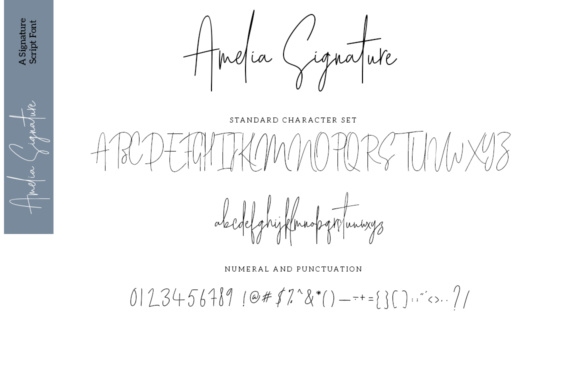 A Signature
Script Font
Amelia Signature
Amelia Signature
STANDARD CHARACTER SET
ABCDEFGHIJKLMNOPQRSTUVWXYZ
abcdefghijklmnopqrstuvwxyz
NUMERAL AND PUNCTUATION
0123456789 !@#$%^&*()—÷+={}[]:;"'<>,.?/